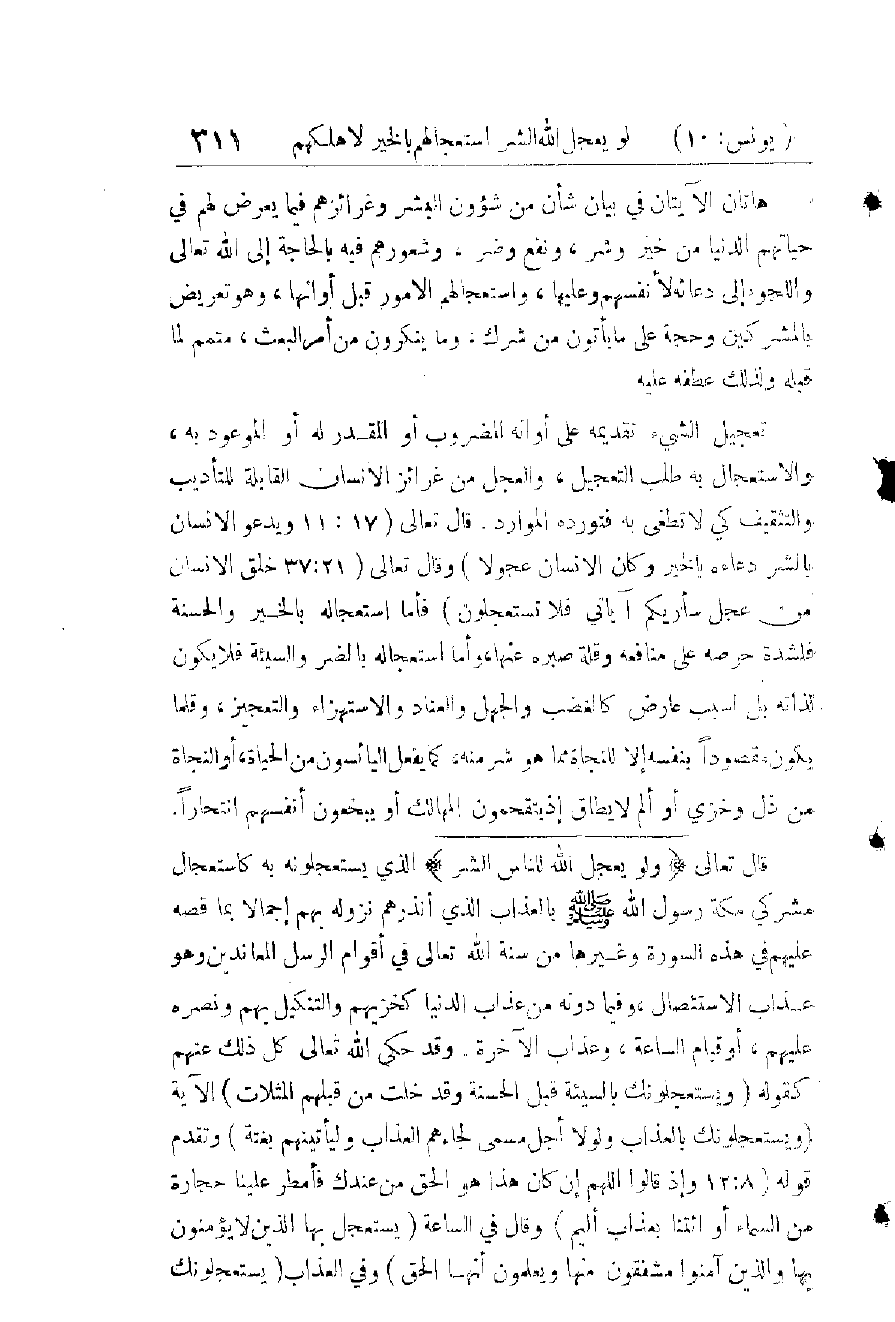 ( يونس: ١٠ ) لو يعجل الله الشر استعجالهم بالخير لاهلكهم ٣١١
هاتان الآيتان في بيان شأن من شؤون البشر وغرائزهم فيما يعرض لهم في
حياتهم الدنيا من خير وشر ، ونفع وضر ، وشعورهم فيه بالحاجة إلى الله تعالى
واللجوء إلى دعائه لأنفسهم وعليها ، واستعجالهم الامور قبل أوانها ، وهو تعريض
بالمشركين وحجة على ما يأتون من شرك ، وما ينكرون من أمر البعث ، متمم لما
قبله ولذلك عطفه عليه
تعجيل الشيء تقديمه على أوانه المضروب أو المقدر له أو الموعود به ،
والاستعجال به طلب التعجيل ، والعجل من غرائز الانسان القابلة للتأديب
والتثقيف كي لا تطغى به فتورده الموارد . قال تعالى ( ١٧ : ١١ ويدعو الانسان
بالشر دعاءه بالخير وكان الانسان عجولا ) وقال تعالى ( ٢١:٣٧ خلق الانسان
من عجل سأريكم آياتي فلا تستعجلون ) فأما استعجاله بالخير والحسنة
فلشدة حرصه على منافعه وقلة صبره عنها، وأما استعجاله بالضر والسيئة فلا يكون
لذاته بل لسبب عارض كالغضب والجهل والعناد والاستهزاء والتعجيز ، وقلما
يكون مقصوداً بنفسه إلا للنجاة مما هو شر منه، كما يفعل اليائسون من الحياة، أو النجاة
من ذل وخزي أو ألم لا يطاق إذ يتقحمون المهالك أو يبخعون أنفسهم انتحاراً.
قال تعالى ﴿ ولو يعجل الله للناس الشر ﴾ الذي يستعجلونه به كاستعجال
مشركي مكة رسول الله ﷺ بالعذاب الذي أنذرهم نزوله بهم إجمالا بما قصه
عليهم في هذه السورة وغيرها من سنة الله تعالى في أقوام الرسل المعاندين وهو
عذاب الاستئصال ، وفيما دونه من عذاب الدنيا كخزيهم والتنكيل بهم ونصره
عليهم ، أو قيام الساعة ، وعذاب الآخرة . وقد حكى الله تعالى كل ذلك عنهم
كقوله ( ويستعجلونك بالسيئة قبل الحسنة وقد خلت من قبلهم المثلات ) الآية
(ويستعجلونك بالعذاب ولولا أجل مسمى لجاءهم العذاب وليأتينهم بغتة ) وتقدم
قوله ( ١٢:٨ وإذ قالوا اللهم إن كان هذا هو الحق من عندك فأمطر علينا حجارة
من السماء أو ائتنا بعذاب أليم ) وقال في الساعة ( يستعجل بها الذين لا يؤمنون
بها والذين آمنوا مشفقون منها ويعلمون أنها الحق ) وفي العذاب ( يستعجلونك